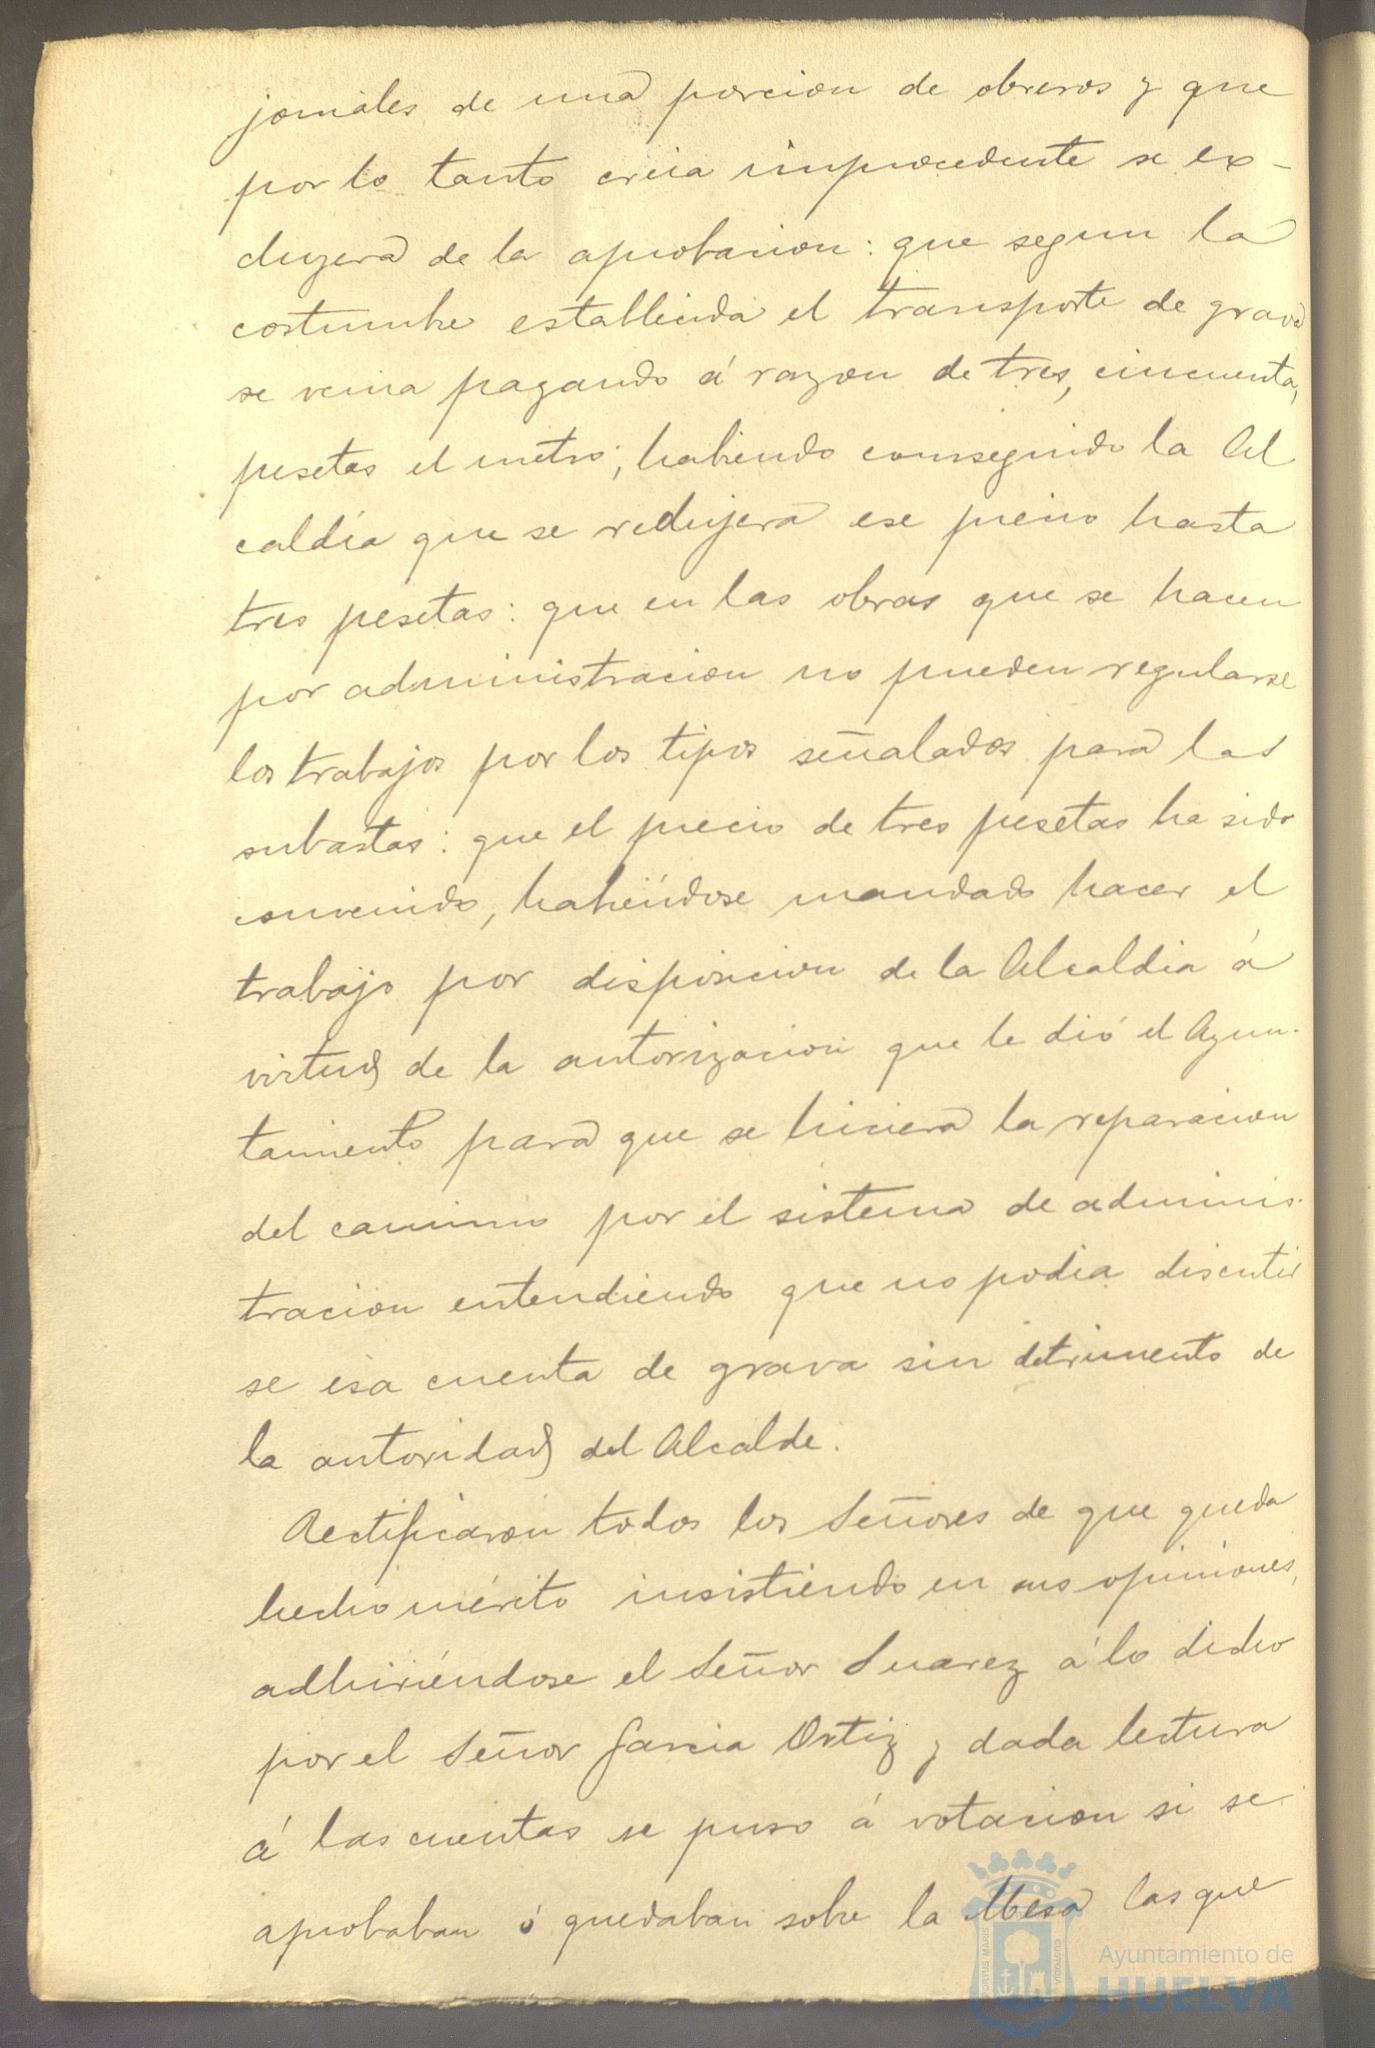 jornales de una porcion de obreros y que
por lo tanto creia improcedente se ex-
cluyera de la aprobacion: que segun la
costumbre establecida el transporte de grava
se venia pagando á razon de tres, cincuenta,
pesetas el metro; habiendo conseguido la Al
caldía que se redujera ese precio hasta
tres pesetas: que en las obras que se hacen
por administracion no pueden regularse
los trabajos por los tipos señalados para las
subastas: que el precio de tres pesetas ha sido
convenido, habiéndose mandado hacer el
trabajo por disposicion de la Alcaldia á
virtud de la autorizacion que le dió el Ayun-
tamiento para que se hiciera la reparacion
del camino por el sistema de adminis-
tracion entendiendo que no podia discutir
se esa cuenta de grava sin detrimento de
la autoridad del Alcalde.
Rectificaron todos los Señores de que queda
hecho mérito insistiendo en sus opiniones,
adhiriéndose el Señor Suarez á lo dicho
por el Señor Garcia Ortiz y dada lectura
á las cuentas se puso á votacion si se
aprobaban ó quedaban sobre la Mesa las que
Ayuntamiento de
HUELVA